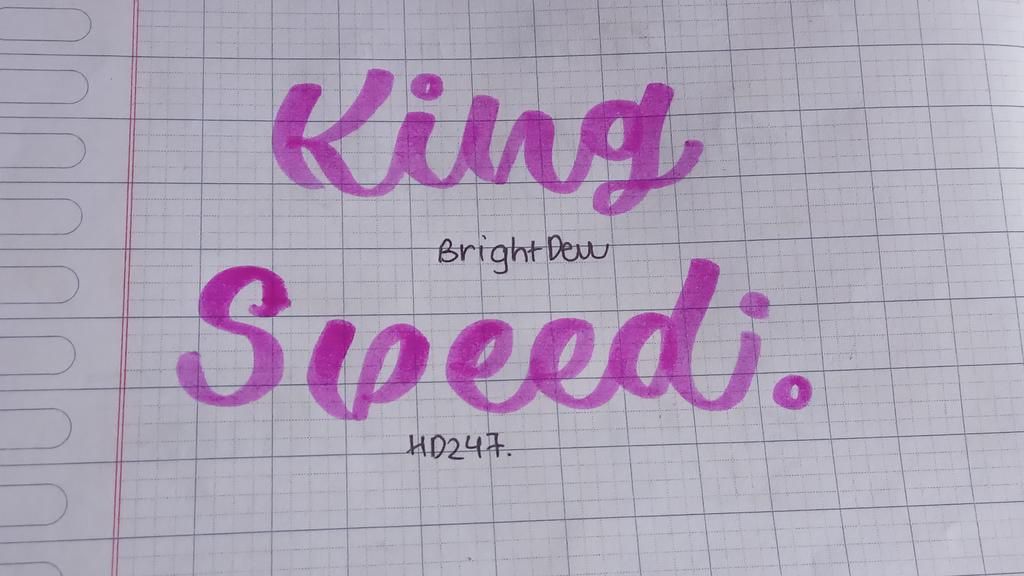 King
BrightDew
Speedi.
HD247.